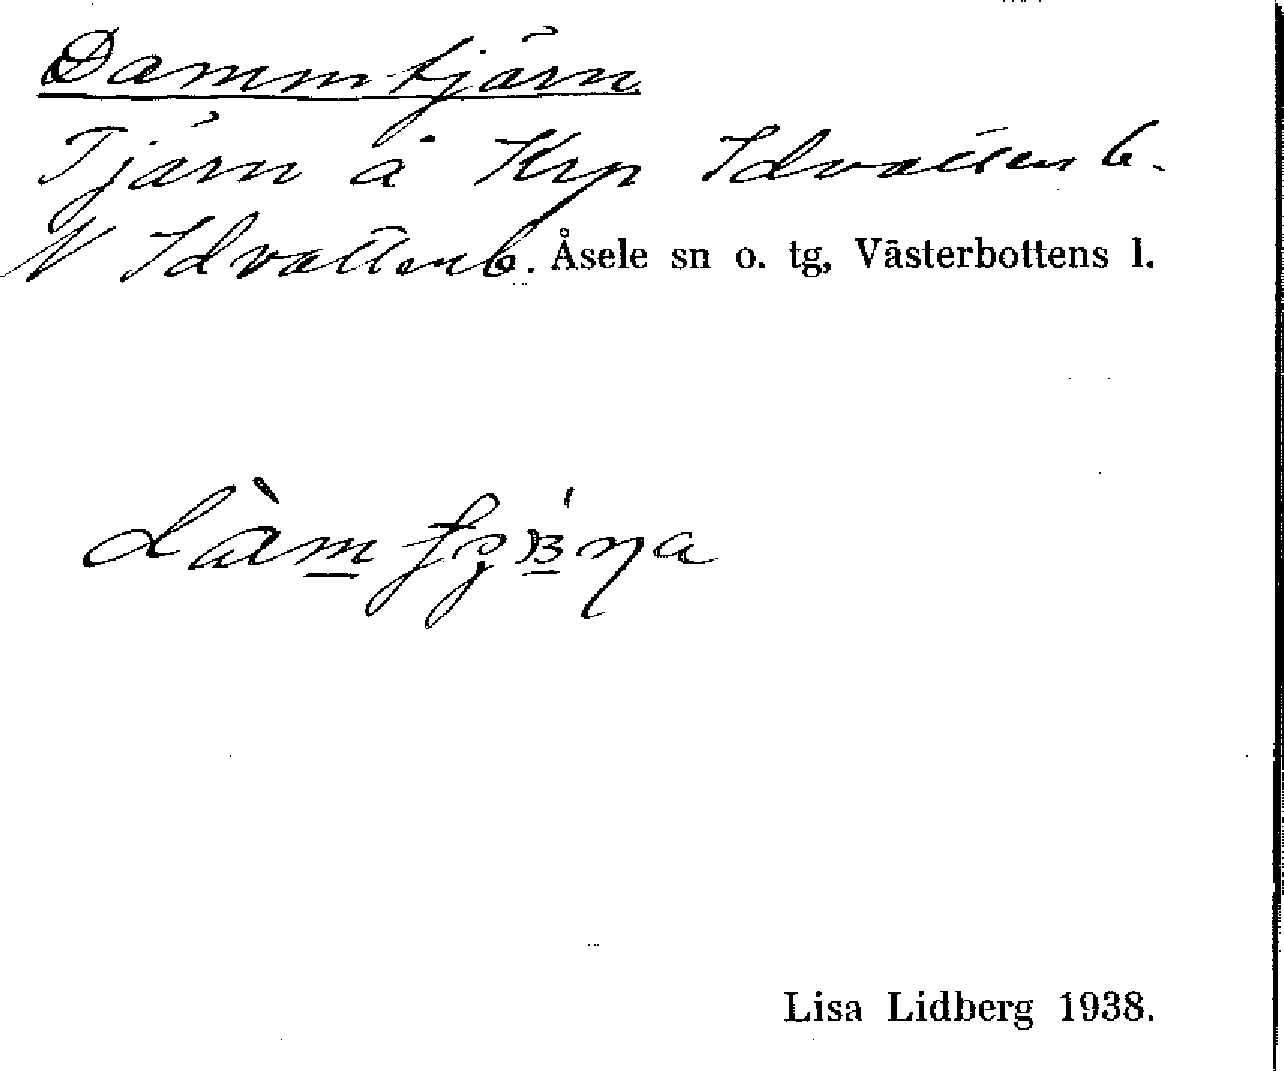 Dammtjärn
Tjärn å Krp Idvattenb.
N Idvattenb. Åsele sn o. tg, Västerbottens l.
Lisa Lidberg 1938.